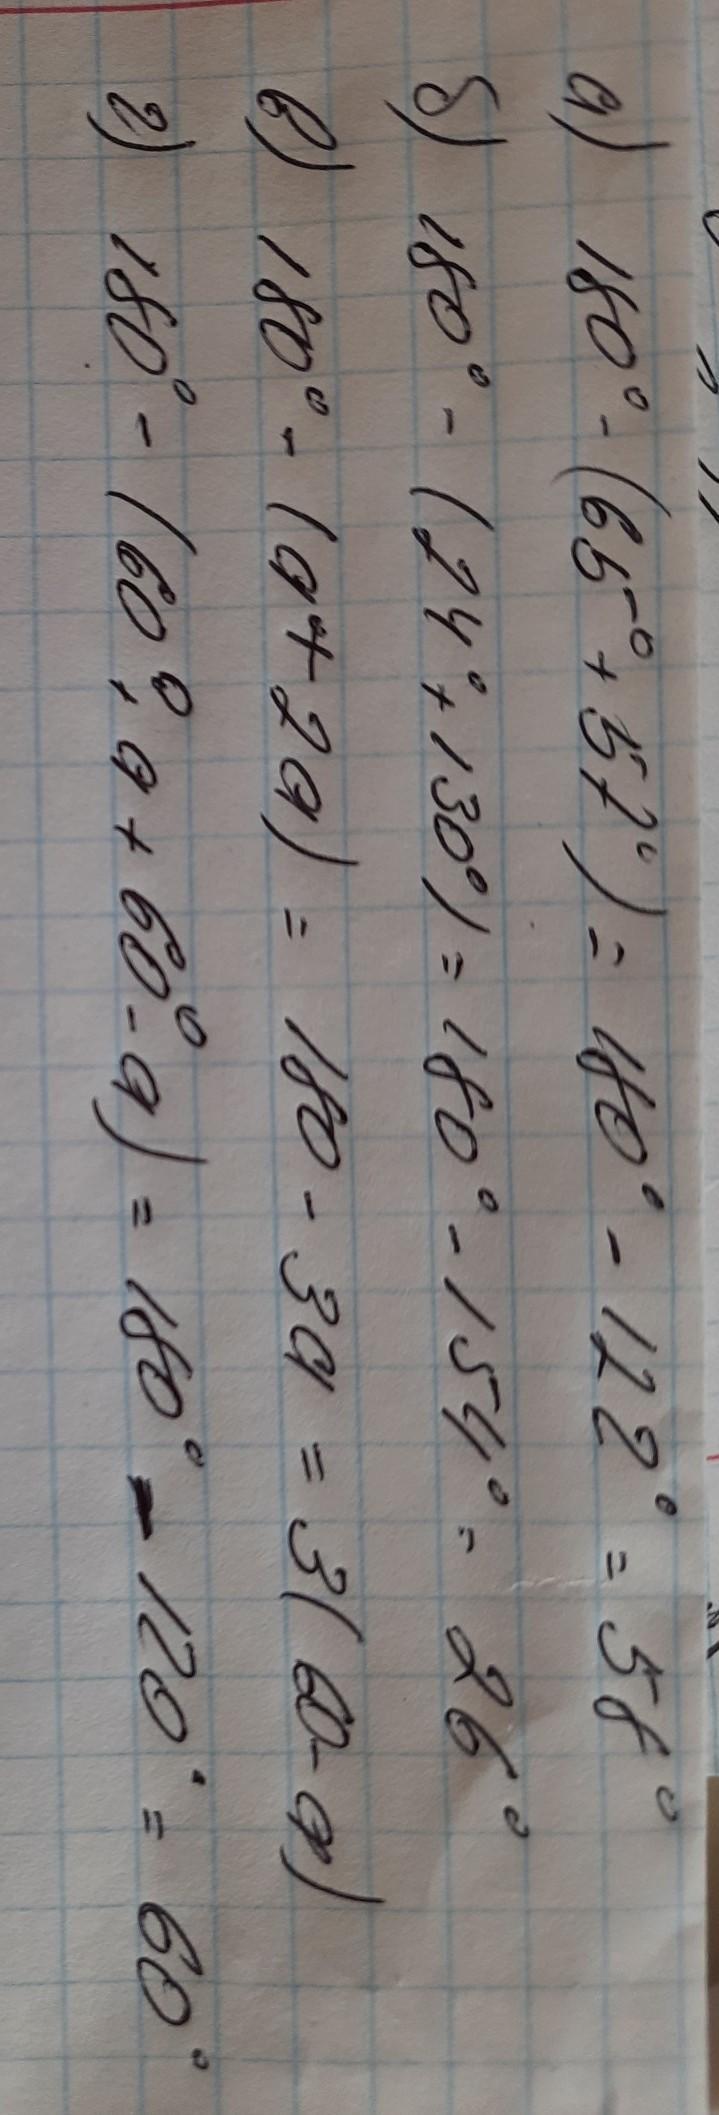 а) 180° - (65° + 57°) = 180° - 122° = 58°
б) 180° - (24° + 130°) = 180° - 154° = 26°
в) 180° - (a + 2a) = 180 - 3a = 3(60 - a)
г) 180° - (60° + a + 60° - a) = 180° - 120° = 60°